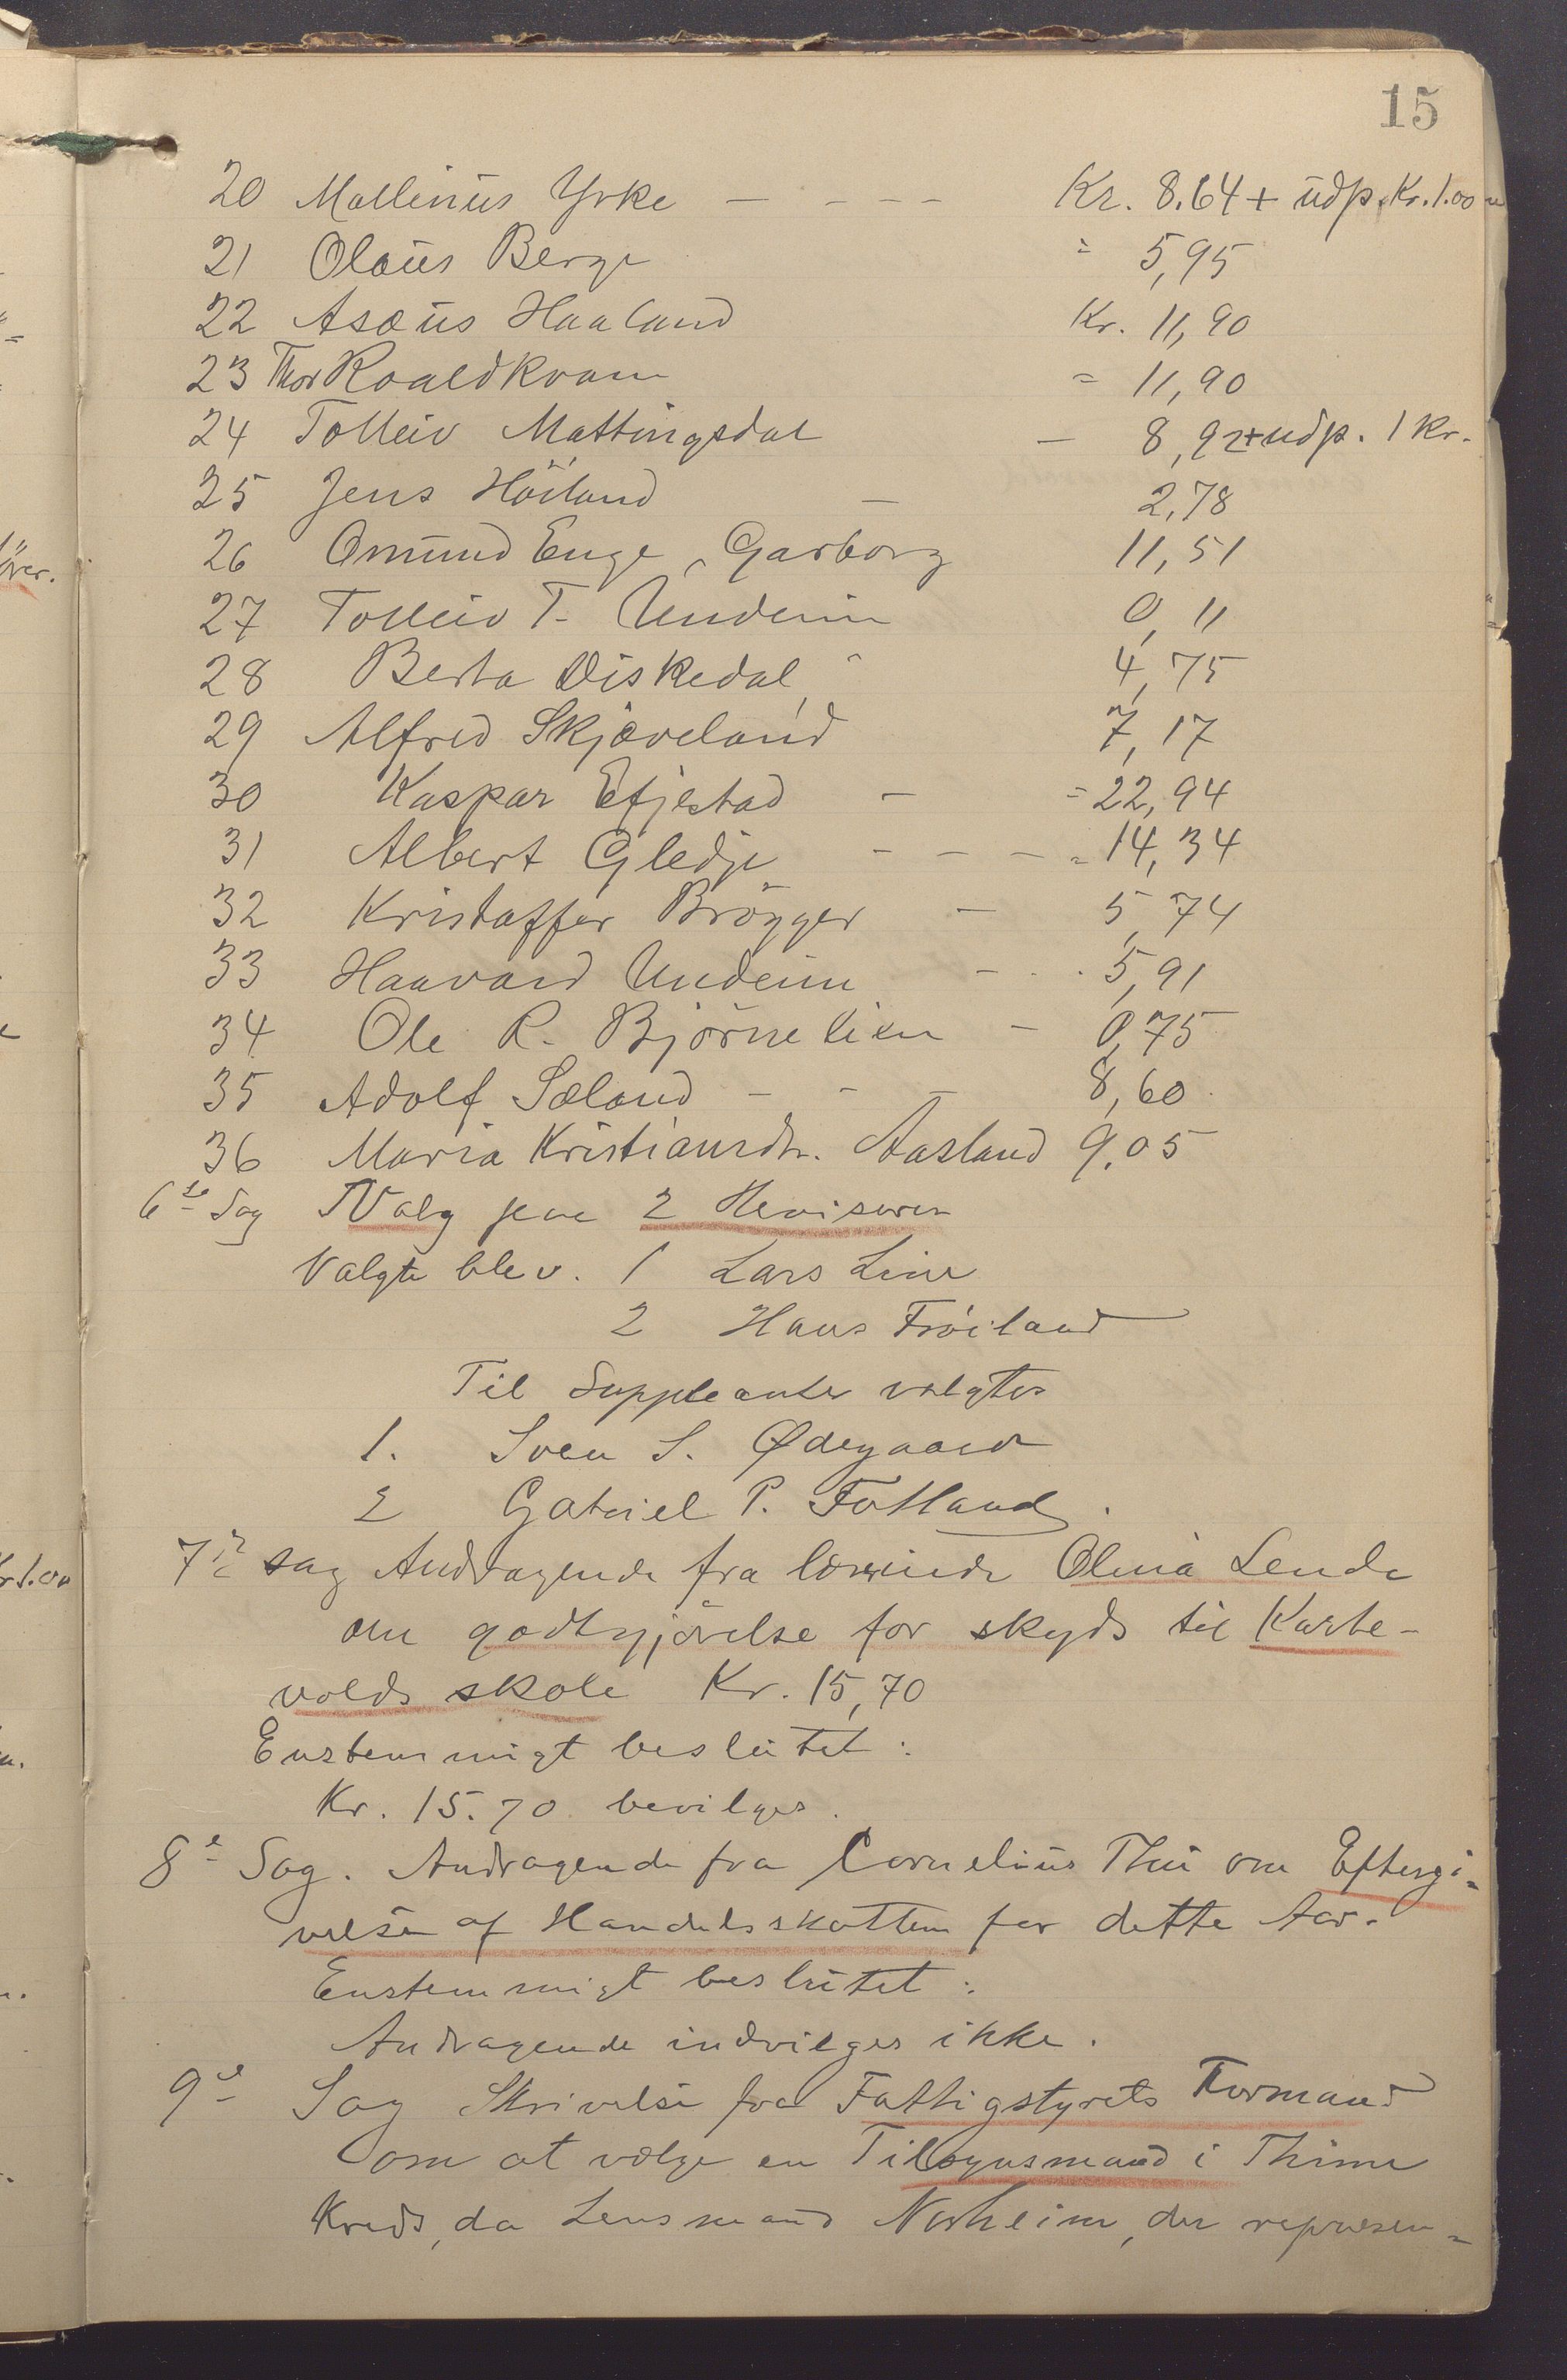 15
20 Mallinius Yrke - - - - Kr. 8.64 + udp. Kr. 1.00
21 Olaus Berge " 5,95
22 Asæus Haaland Kr. 11,90
23 Thor Roaldkvam = 11,90
24 Tolleiv Mattingsdal — 8,92 + udp. 1 Kr.
25 Jens Höiland — 2,78
26 Omund Enge, Garborg 11,51
27 Tolleiv T. Undeim 0,11
28 Berta Viskedal 4,75
29 Alfred Skjæveland 7,17
30 Kaspar Efjestad — = 22,94
31 Albert Gledje - - - = 14,34
32 Kristoffer Brögger — 5,74
33 Haavard Undeim - . . 5,91
34 Ole R. Björnelien - 0,75
35 Adolf Sæland - - — 8,60
36 Maria Kristiansdtr. Aasland 9.05
6te Sag Valg paa 2 Revisorer
Valgte blev. 1 Lars Line
2 Hans Fröiland
Til Suppleanter valgtes
1. Sven S. Ødegaard
2 Gabriel P. Fotland.
7de sag Andragende fra lærerinde Olena Lende
om godtgjörelse for skyds til Karte-
volds skole Kr. 15,70
Enstemmigt beslutet:
Kr. 15.70 bevilges.
8e Sag. Andragende fra Cornelius Thu om Eftergi-
velse af Handelsskatten for dette Aar.
Enstemmigt beslutet:
Andragende indvilges ikke.
9e Sag Skrivelse fra Fattigstyrets Formand
om at vælge en Tilsynsmand i Thime
Kreds, da Lensmand Norheim, der repræsen-